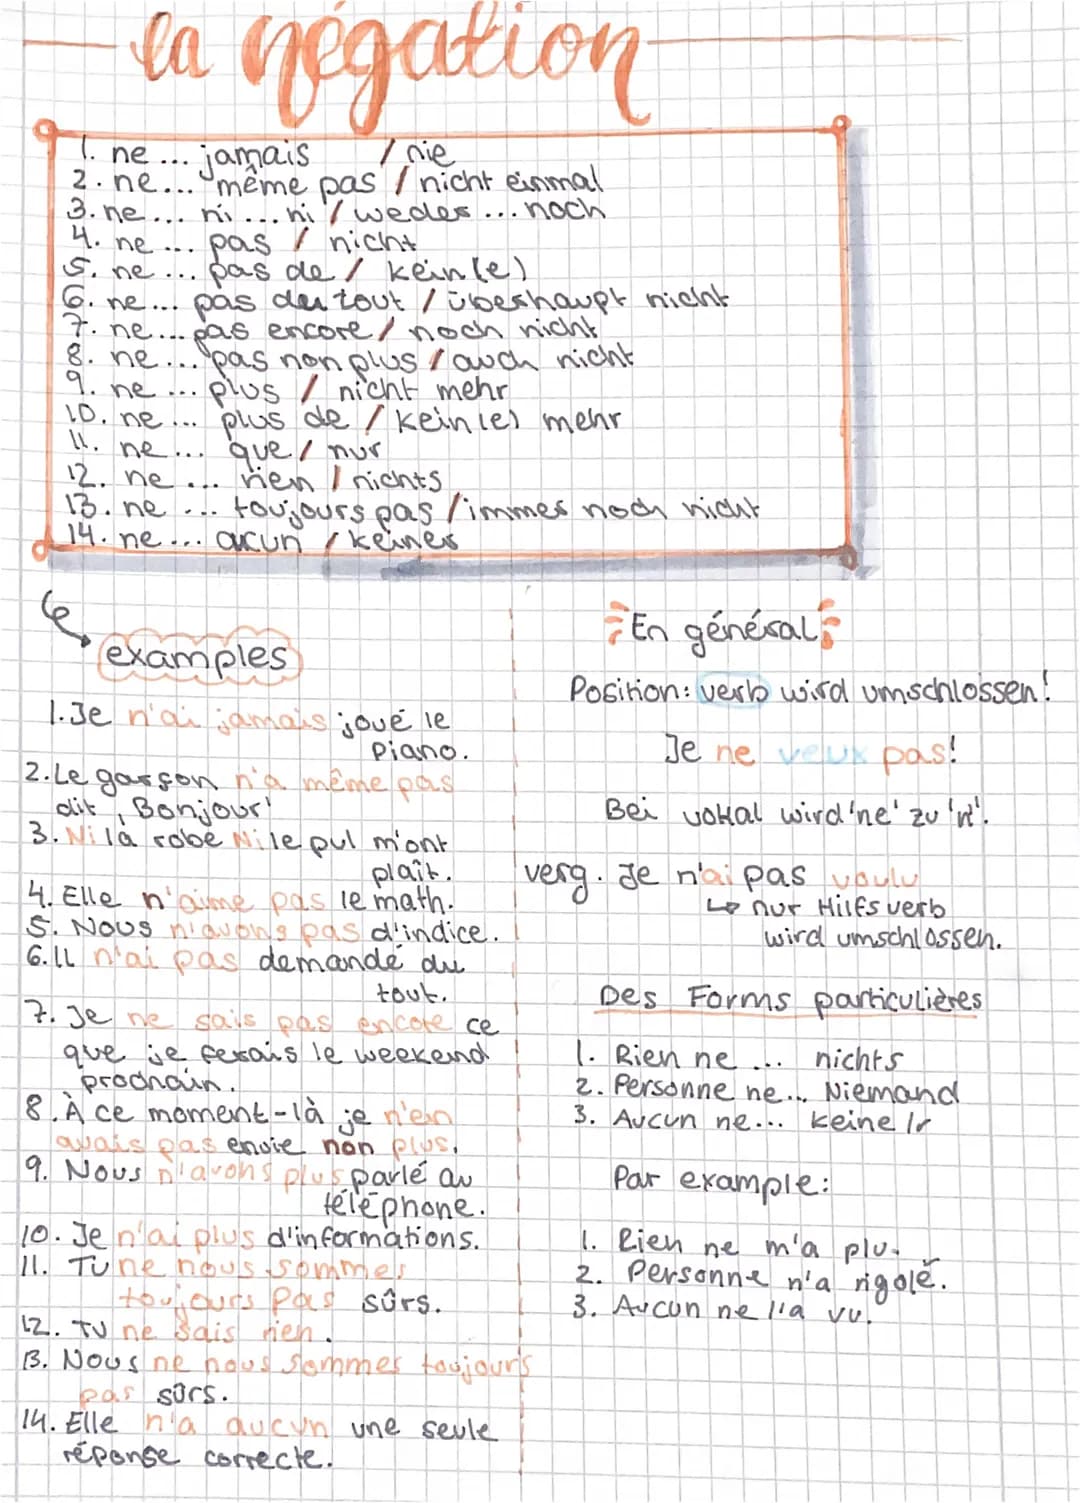 la négation
1. ne ... jamais / nie
2. ne... même pas / nicht einmal
3. ne ... ni ... ni / weder ... noch
4. ne ... pas / nicht
5. ne ... pas de / kein(e)
6. ne... pas du tout / überhaupt nicht
7. ne... pas encore / noch nicht
8. ne... pas non plus / auch nicht
9. ne ... plus / nicht mehr
10. ne ... plus de / kein(e) mehr
11. ne ... que / nur
12. ne ... rien / nichts
13. ne ... toujours pas / immer noch nicht
14. ne ... aucun / keiner
examples
1. Je n'ai jamais joué le
piano.
2. Le garson n'a même pas
dit, Bonjour'
3. Ni la robe Ni le pul m'ont
plaît.
4. Elle n'aime pas le math.
5. Nous n'avons pas d'indice.
6. Il n'ai pas demandé du
tout.
7. Je ne sais pas encore ce
que je ferais le weekend
prochain.
8. À ce moment-là je n'en
avais pas envie non plus.
9. Nous n'avons plus parlé au
téléphone.
10. Je n'ai plus d'informations.
11. Tu ne nous sommes
toujours pas sûrs.
12. Tu ne sais rien.
13. Nous ne nous sommes toujours
pas sûrs.
14. Elle n'a aucun une seule
réponse correcte.
En général
Position: verb wird umschlossen!
Je ne veux pas!
Bei vokal wird 'ne' zu 'n'.
verg. Je n'ai pas voulu
↳ nur Hilfsverb
wird umschlossen.
Des Forms particulières
1. Rien ne ... nichts
2. Personne ne... Niemand
3. Aucun ne... keine/r
Par example:
1. Rien ne m'a plu.
2. Personne n'a rigolé.
3. Aucun ne l'a vu.